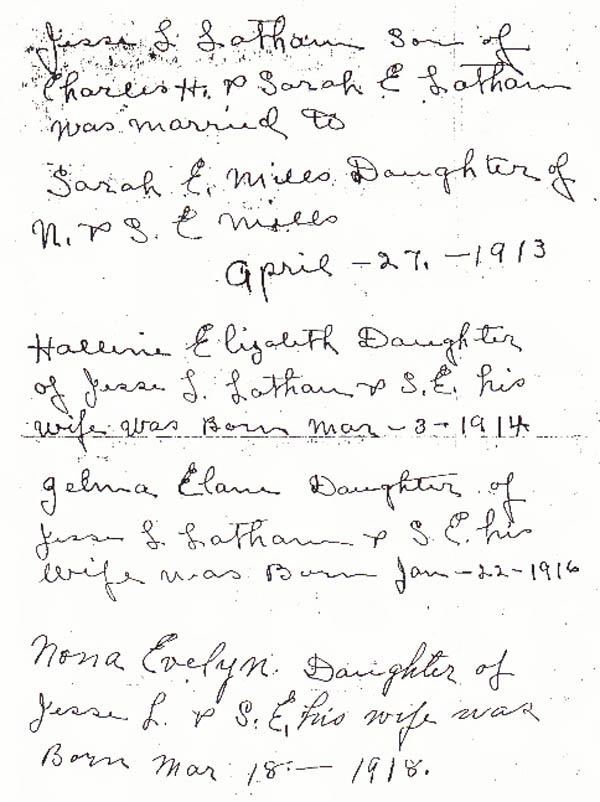 Jesse L Latham Son of
Charles H. & Sarah E Latham
was married to
Sarah E. Mills Daughter of
N. & S. E Mills
April - 27. - 1913
Halline Elizabeth Daughter
of Jesse L. Latham & S.E. his
wife was Born Mar - 3 - 1914
Gelma Elane Daughter of
Jesse L. Latham & S. E. his
wife was Born Jan - 22 - 1916
Nona Evelyn. Daughter of
Jesse L. & S. E, his wife was
Born Mar 18. — 1918.